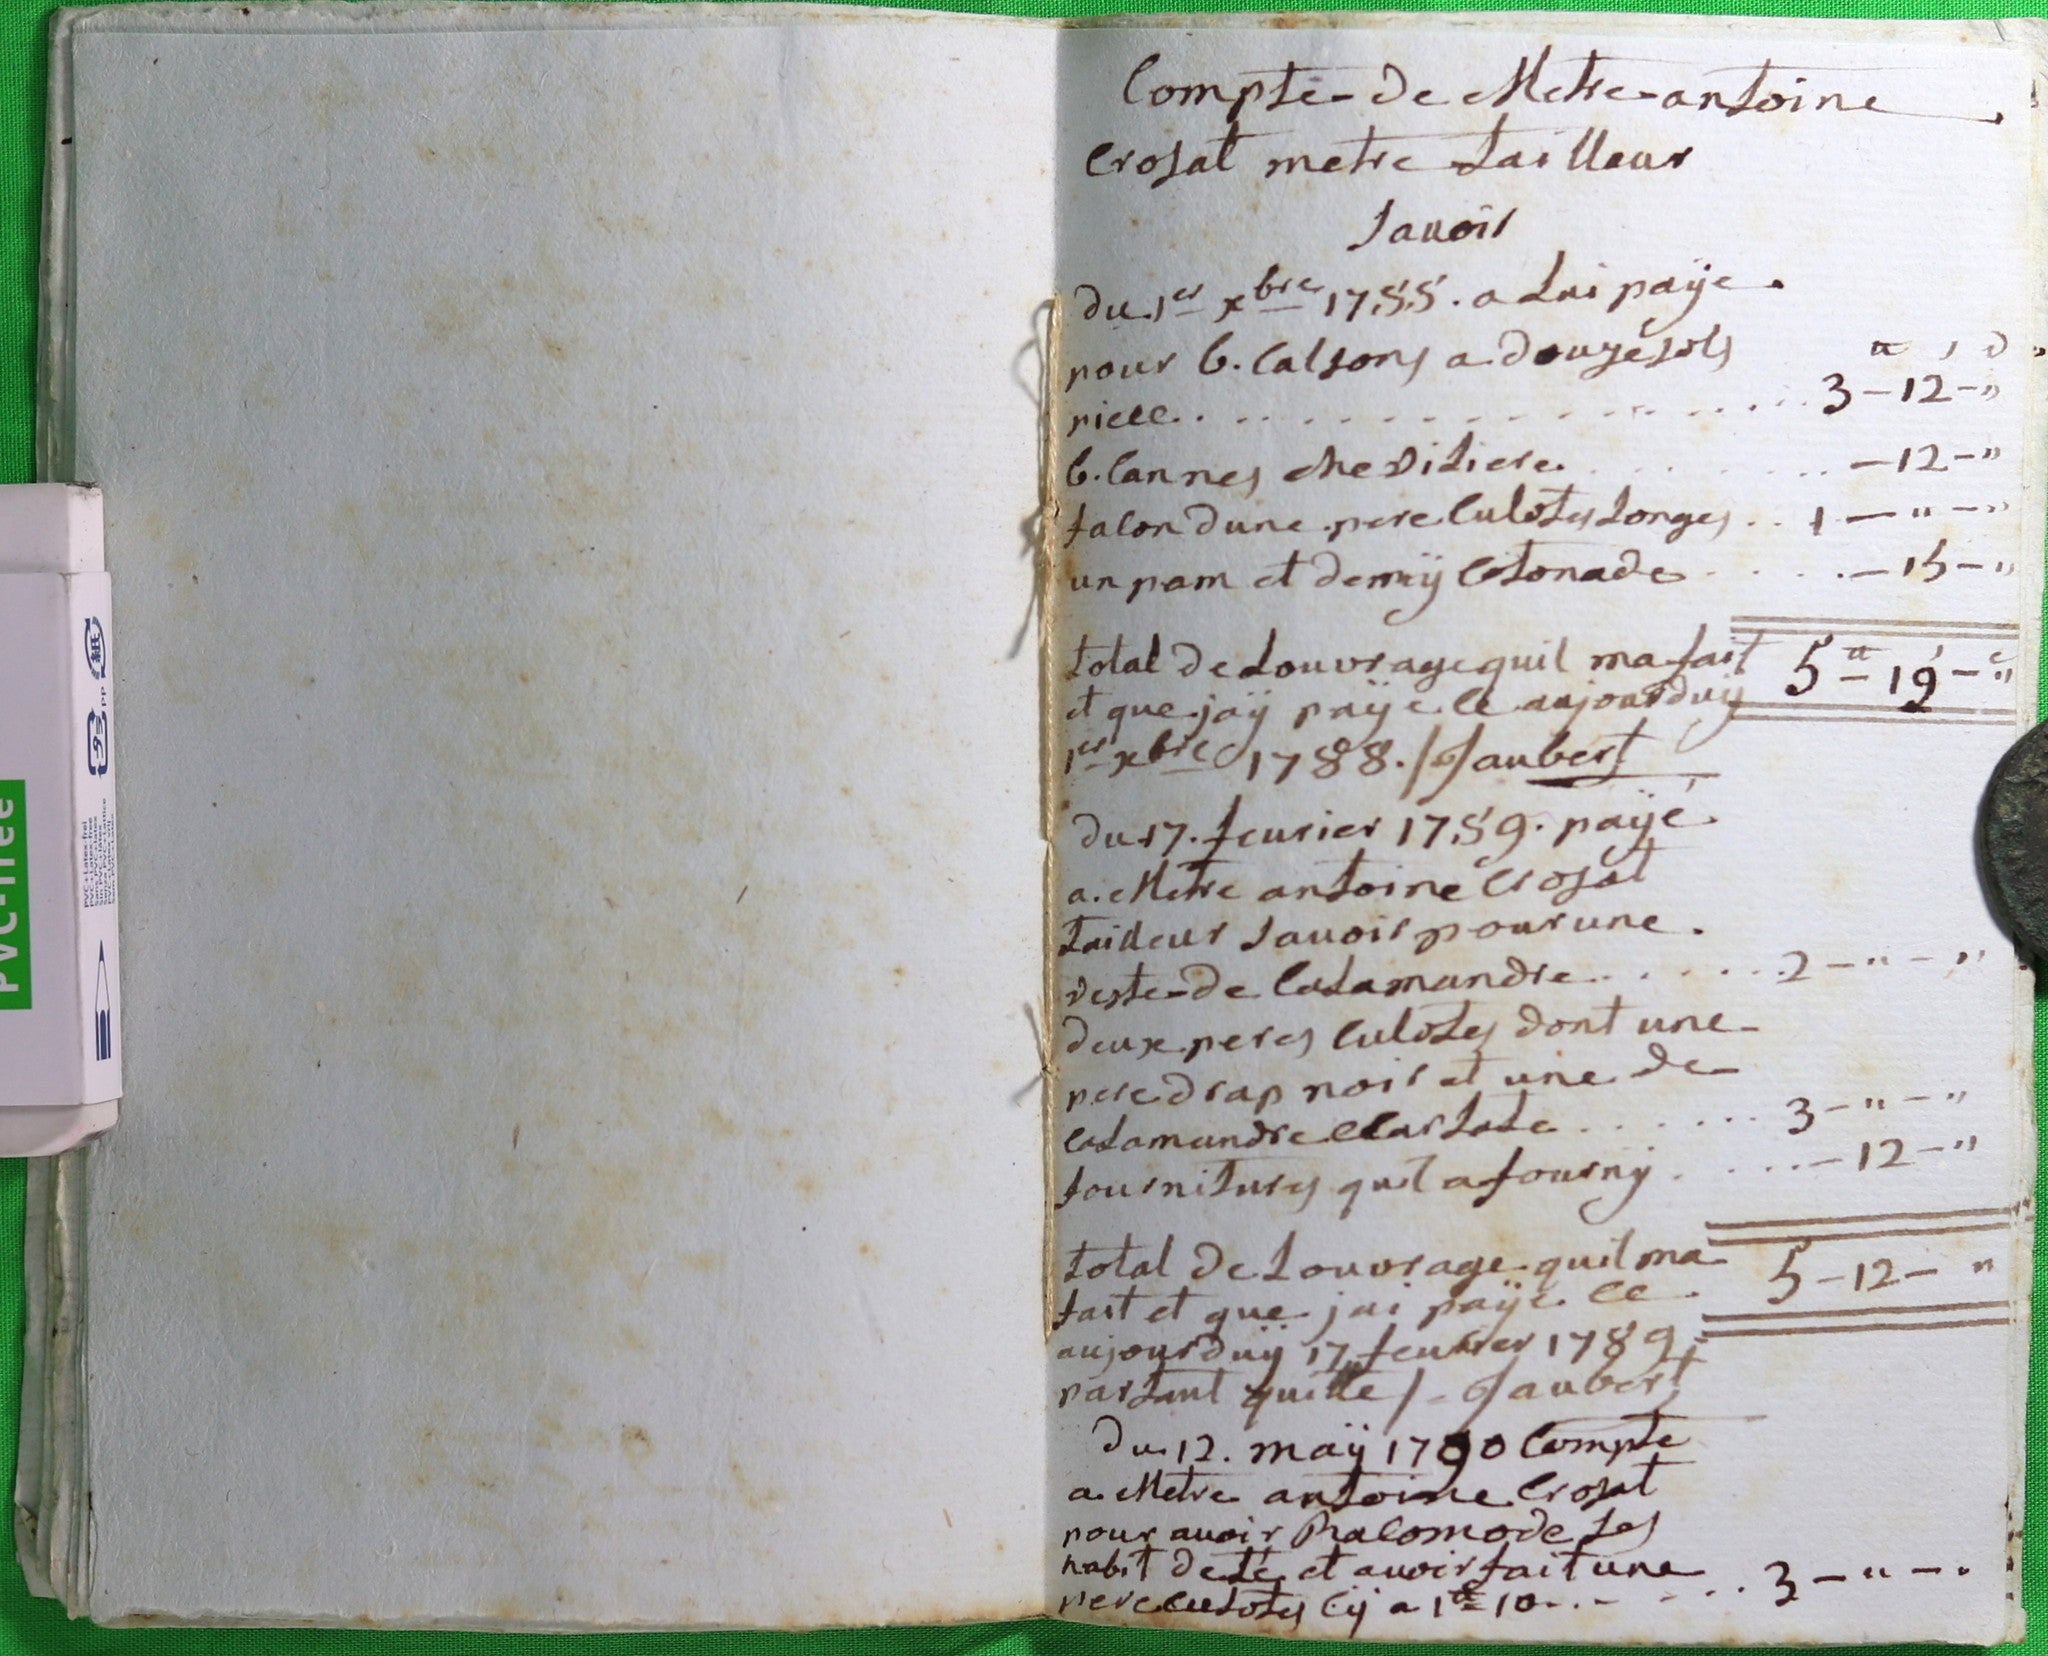 Compte de Metre antoine
Crosat metre tailleur
Savoir
du 1er xbre 1788. a Lui payé.
pour 6. Calsons a douze sols
piece . . . . . . . . . . . 3 - 12 - "
6. Cannes . . . . . . . - 12 - "
facon dune pere Culotes Longes . . 1 - " - "
un pam et demÿ Cotonade . . . . . - 15 - "
total de Louvrage quil ma fait 5 tt - 19 s - "
et que jaÿ paÿe ce aujourduÿ
1er xbre 1788. / Jaubert
du 17. feurier 1789. paÿé
a. Metre antoine Crosat
tailleur Savoir pour une.
veste de Calamandre . . . . . . 2 - " - "
deux peres Culotes dont une
pere drap noir et une de
Calamandre Ecarlate . . . . . . 3 - " - "
fournitures quil a fourny . . . . . - 12 - "
total de Louvrage quil ma 5 - 12 - "
fait et que jai paÿe ce
aujourduÿ 17 feurier 1789.
partant quitte / - Jaubert
du 12. maÿ 1790 Compte
a Metre antoine Crosat
pour avoir Racomode Les
habit deté et avoir fait une
pere Culotes Cÿ a 1 tt - 10 . . . . . 3 - " - "
PVC-free
PVC+Latex-frei
PVC+Latex-free
Sans PVC+latex
Sin PVC+látex
紙
PP